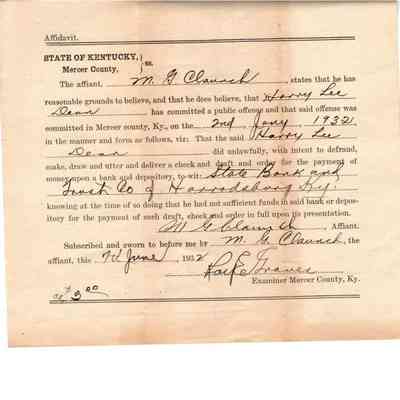 Affidavit.
STATE OF KENTUCKY, } ss.
Mercer County,
The affiant, M. G Claunch, states that he has
reasonable grounds to believe, and that he does believe, that Harry Lee
Dean has committed a public offense and that said offense was
committed in Mercer county, Ky., on the 2nd Jany 1932
in the manner and form as follows, viz: That the said Harry Lee
Dean did unlawfully, with intent to defraud,
make, draw and utter and deliver a check and draft and order for the payment of
money upon a bank and depository, to-wit: State Bank and
Trust Co of Harrodsburg Ky.
knowing at the time of so doing that he had not sufficient funds in said bank or depos-
itory for the payment of such draft, check and order in full upon its presentation.
M G Claunch, Affiant.
Subscribed and sworn to before me by M. G. Claunch, the
affiant, this June, 1932
Examiner Mercer County, Ky.
$3.00